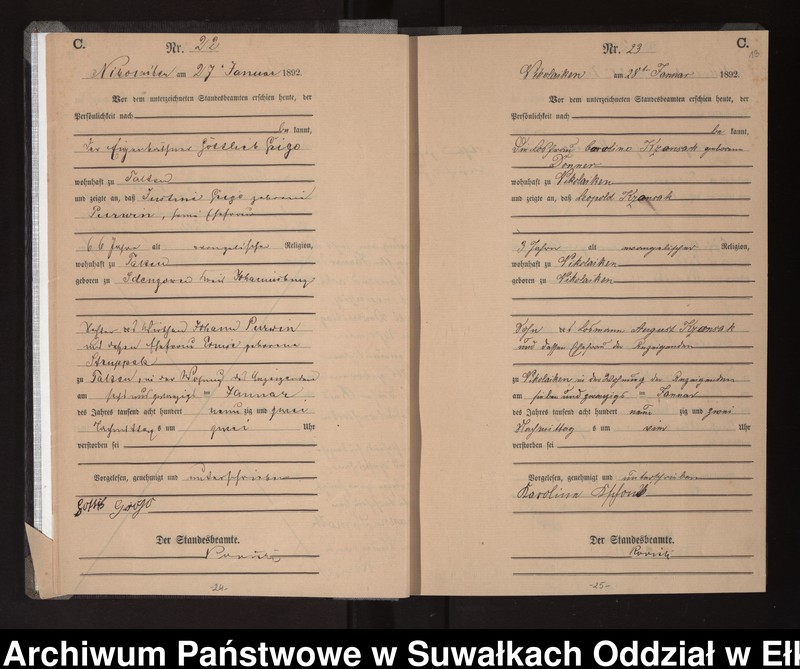 C.
Nr. 22
Nikolaiken am 27 Januar 1892.
Vor dem unterzeichneten Standesbeamten erschien heute, der
Persönlichkeit nach
be kannt,
der Eigenkäthner Gottlieb
wohnhaft zu Talten
und zeigte an, daß
, seine Ehefrau
66 Jahre alt evangelischer Religion,
wohnhaft zu Talten
geboren zu Kreis Johannisburg
Tochter des Johann Purwin
und dessen Ehefrau geborene
zu Talten, in der Wohnung des Anzeigenden
am sechs und zwanzigs ten Januar
des Jahres tausend acht hundert neun zig und zwei
Nachmittags um zwei Uhr
verstorben sei
Vorgelesen, genehmigt und unterschrieben
Der Standesbeamte.
-24-
Nr. 23
C.
Nikolaiken am 28ten Januar 1892.
Vor dem unterzeichneten Standesbeamten erschien heute, der
Persönlichkeit nach
be kannt,
geborene
wohnhaft zu Nikolaiken
und zeigte an, daß Leopold
3 Jahre alt evangelischer Religion,
wohnhaft zu Nikolaiken
geboren zu Nikolaiken
Sohn des Losmann August
und dessen Ehefrau der Anzeigenden
zu Nikolaiken in der Wohnung der Anzeigenden
am sieben und zwanzigs ten Januar
des Jahres tausend acht hundert neun zig und zwei
Nachmittag s um vier Uhr
verstorben sei
Vorgelesen, genehmigt und unterschrieben
Karolina
Der Standesbeamte.
-25-
Archiwum Państwowe w Suwałkach Oddział w Eł